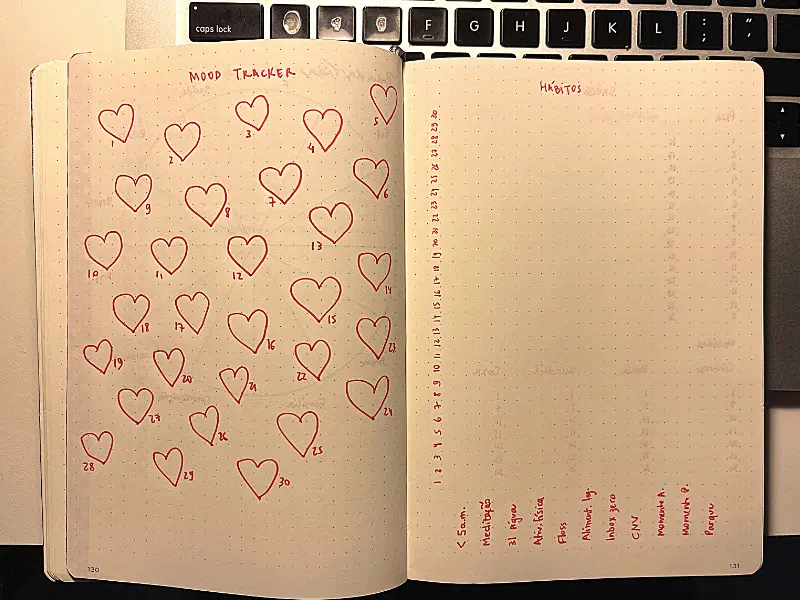 caps lock
F G H J K L : ; " ,
MOOD TRACKER
1 2 3 4 5
9 8 7 6
10 11 12 13 14
18 17 16 15
19 20 21 22 23
27 26 25 24
28 29 30
130
HÁBITOS
1 2 3 4 5 6 7 8 9 10 11 12 13 14 15 16 17 18 19 20 21 22 23 24 25 26 27 28 29 30
< 5 a.m.
Meditação
3l água
Ativ. física
Floss
Aliment. lg.
Inbox zero
CNV
Momento A.
Momento P.
Parque
131